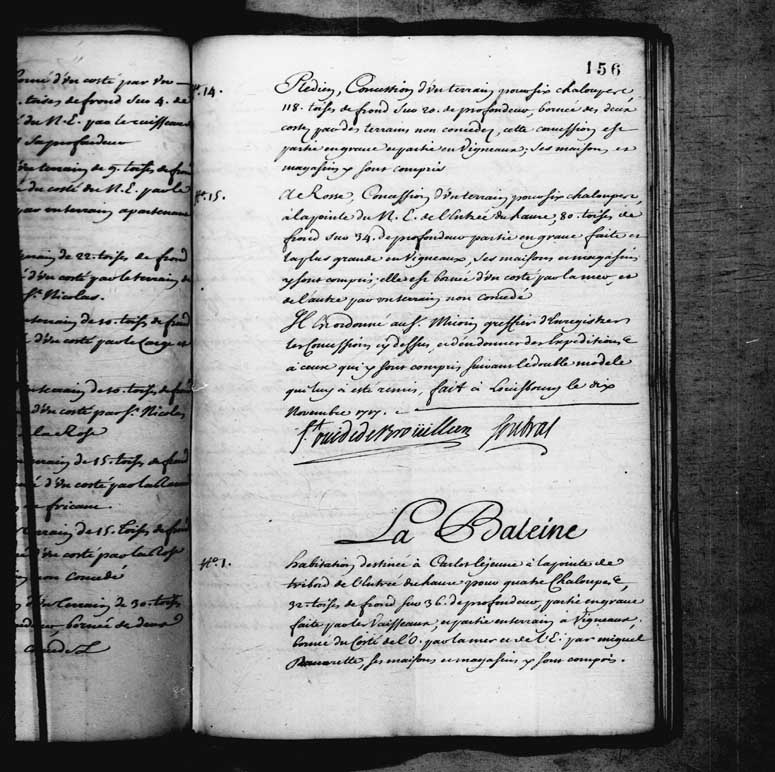 156
orné d'un costé par un
toises de frond sur 4. de
du N.E. par le ruisseau
sa profondeur
d'un terrain de 9. toises de frond
du costé du N.E. par le
par un terrain apartenant
terrain de 22. toises de frond
d'un costé par le terrain de
St. Nicolas.
terrain de 10. toises de frond
d'un costé par le
terrain de 10. toises de frond
d'un costé par St. Nicolas
la Rose
terrain de 15. toises de frond
d'un costé par la
terrain de 15. toises de frond
d'un costé par la Rose
non Concedé
d'un terrain de 30. toises
bornée de deux
No. 14. Concession d'un terrain pour six chaloupes,
118. toises de frond sur 20. de profondeur, bornée des deux
costez par des terrains non concedez, cette concession est
partie en grave et partie en Vigneaux; ses maisons et
magasins y sont compris
No. 15. Concession d'un terrain pour six chaloupes,
à la pointe du N.E. de l'Entrée du havre, 80. toises de
frond sur 34. de profondeur partie en grave faite et
la plus grande en Vigneaux, ses maisons et magasins
y sont compris, elle est bornée d'un costé par la mer, et
de l'autre par un terrain non Concedé
Il est ordonné au Sr. greffier d'Enregistrer
les Concessions cy dessus, et d'en donner des Expeditions
à ceux qui y sont compris suivant le double modele
qui luy à esté remis, fait à Louisbourg le dix
Novembre 1717.
St Ovide de Brouillan Soubras
La Baleine
No. 1. habitation destinée à Carlos Lejeune à la pointe de
tribord de l'Entrée du havre pour quatre Chaloupes,
32. toises de frond sur 36. de profondeur, partie en grave
faite par les Vaisseaux, et partie en terrain à Vigneaux,
bornée du Costé de l'O. par la mer et de l'E. par miguel
ses maisons et magasins y sont compris.